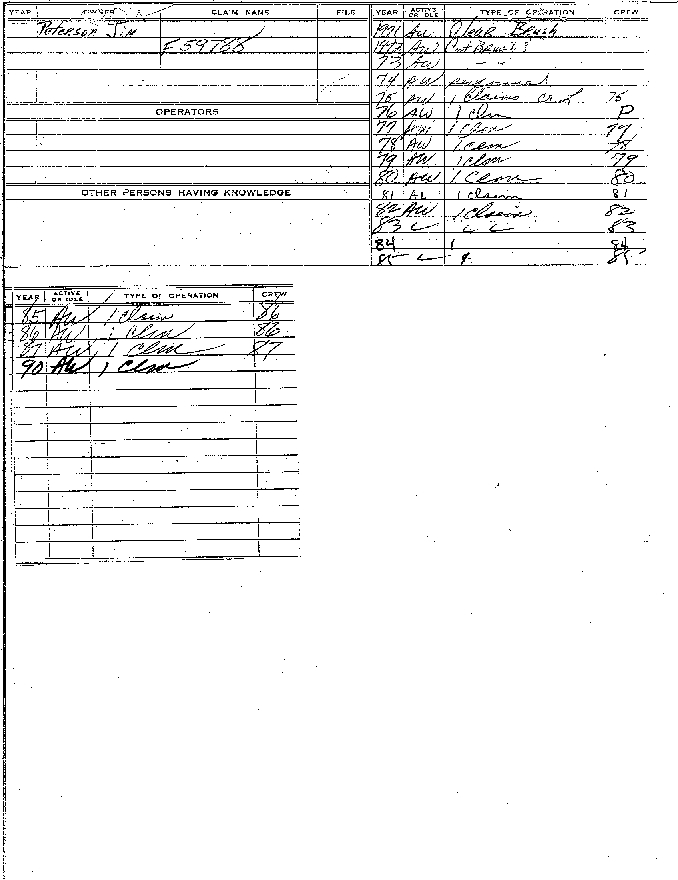 YEAR OWNER CLAIM NAME FILE
Peterson Jim
F 59788
OPERATORS
OTHER PERSONS HAVING KNOWLEDGE
YEAR ACTIVE OR IDLE TYPE OF OPERATION CREW
1971 AW Clear Brush
1972 AW Cut Brush
73 AW " "
74 AW
75 AW 1 Claims 75
76 AW 1 Clm P
77 AW 1 Clm 77
78 AW 1 Clm 78
79 AW 1 Clm 79
80 AW 1 Clm 80
81 AL 1 Claim 81
82 AW 1 Claim 82
83 83
84 84
85 85
YEAR ACTIVE OR IDLE TYPE OF OPERATION CREW
85 AW 1 Claim 86
86 AW 1 Clm 86
87 AW 1 Clm 87
90 AW 1 Clm